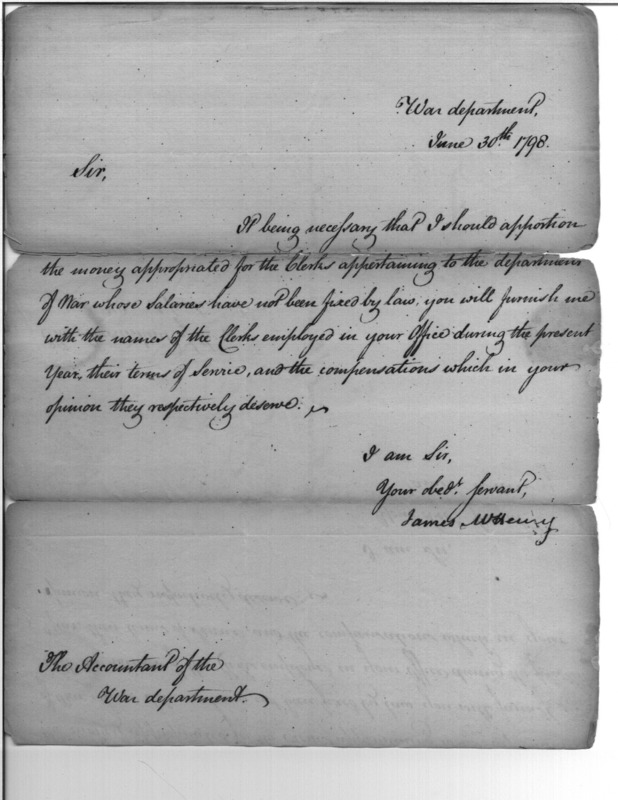 War department,
June 30th. 1798.
Sir,
It being necessary that I should apportion
the money appropriated for the Clerks appertaining to the department
of War whose Salaries have not been fixed by law, you will furnish me
with the names of the Clerks employed in your Office during the present
Year, their terms of Service, and the compensations which in your
opinion they respectively deserve.
I am Sir,
Your obedt. servant,
James McHenry
The Accountant of the
War department.